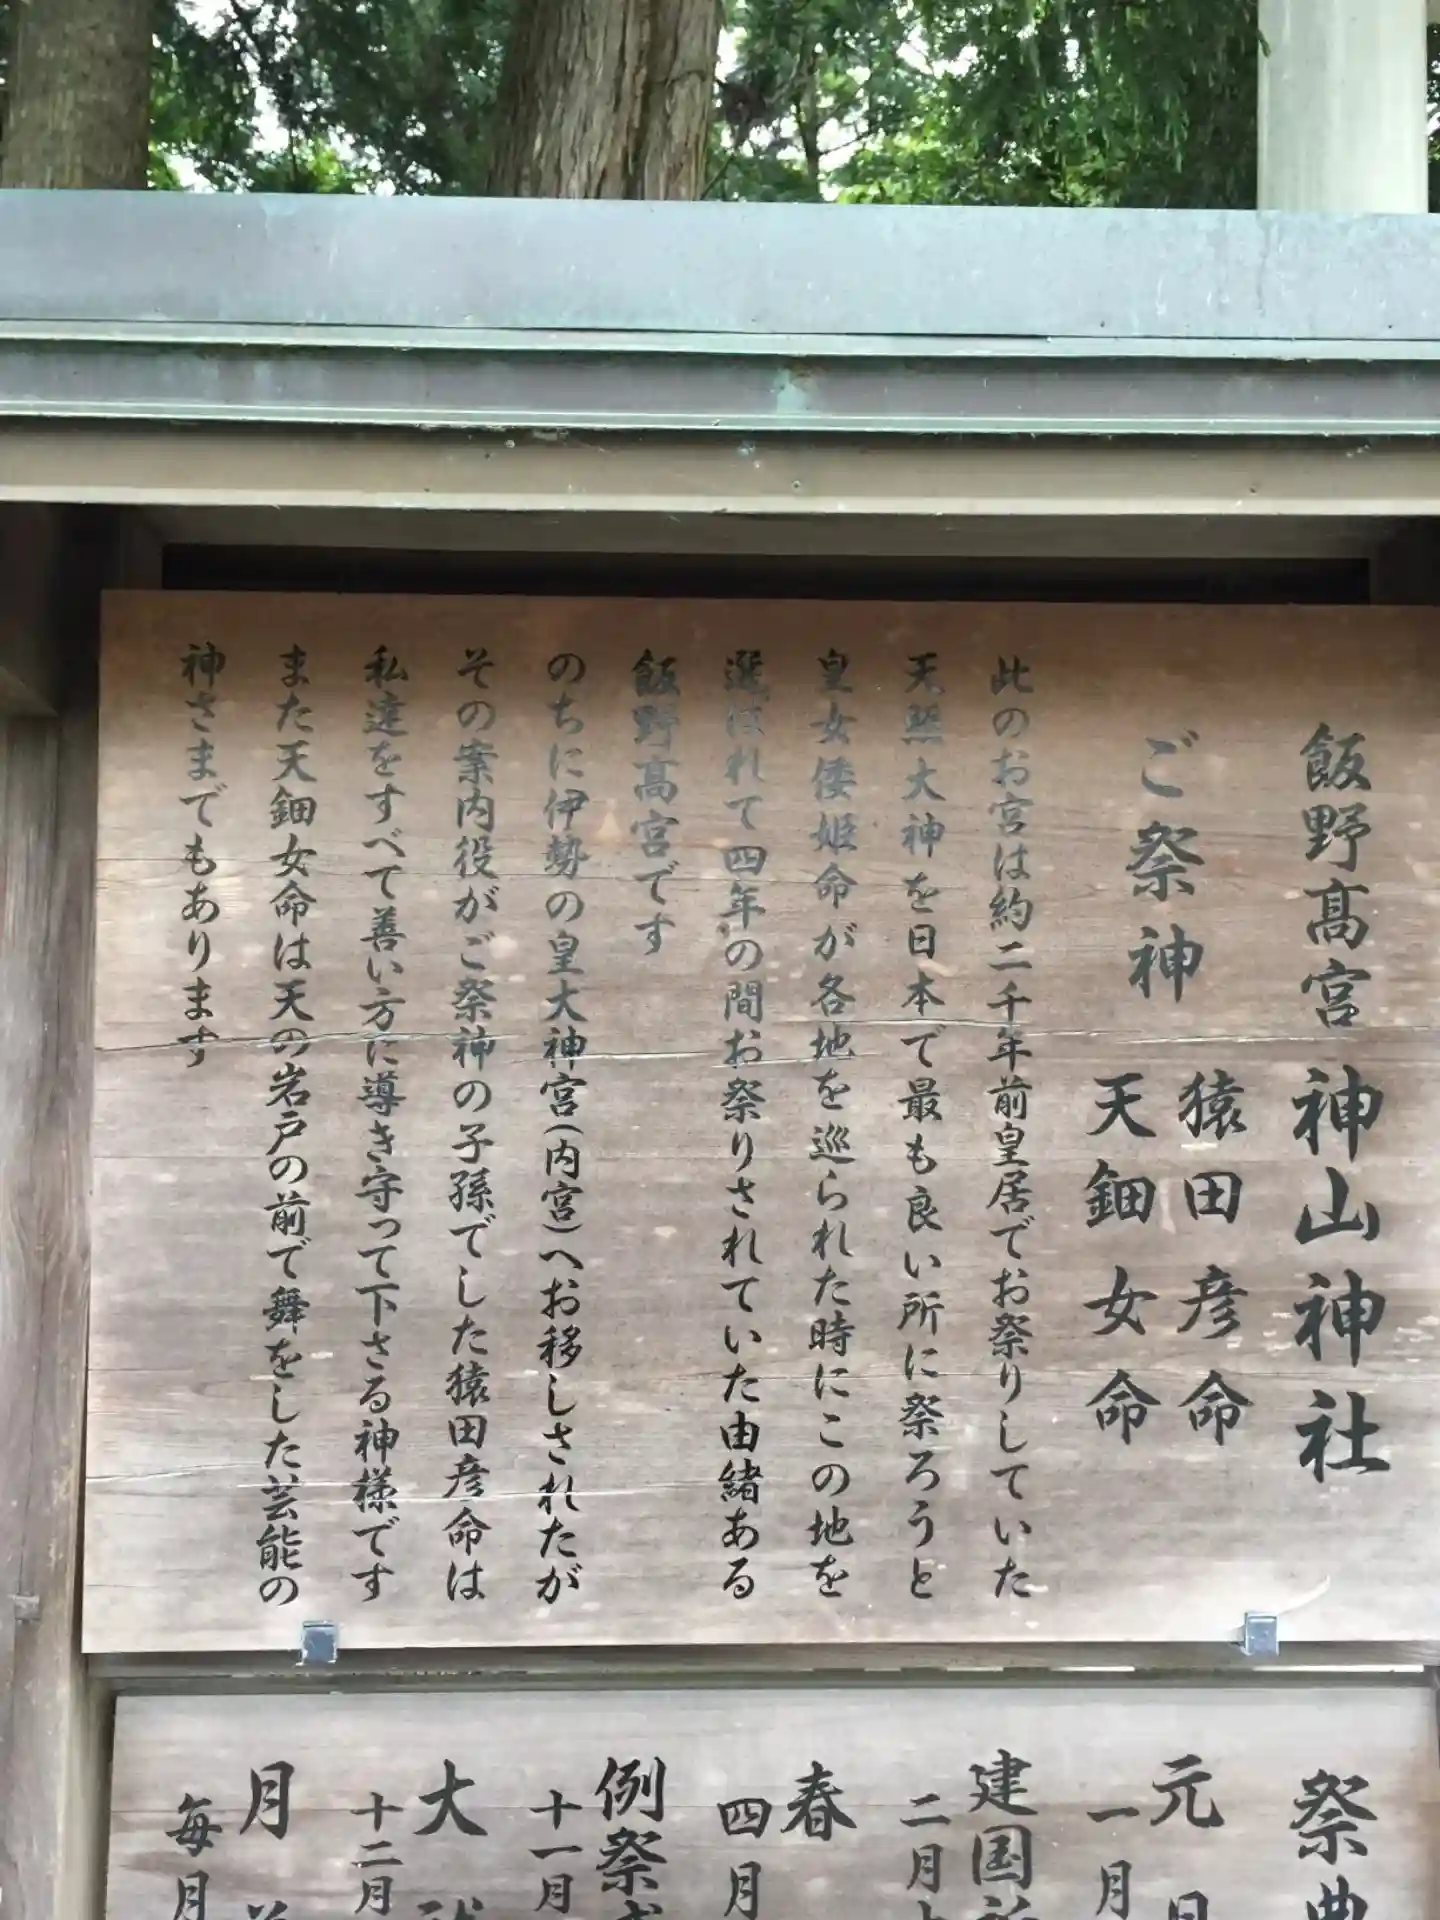 飯野髙宮 神山神社
ご祭神
猿田彦命
天鈿女命
此のお宮は約二千年前皇居でお祭りしていた
天照大神を日本で最も良い所に祭ろうと
皇女倭姫命が各地を巡られた時にこの地を
選ばれて四年の間お祭りされていた由緒ある
飯野高宮です
のちに伊勢の皇大神宮(内宮)へお移しされたが
その案内役がご祭神の子孫でした猿田彦命は
私達をすべて善い方に導き守って下さる神様です
また天鈿女命は天の岩戸の前で舞をした芸能の
神さまでもあります
祭典
元旦
一月
建国祈
二月
春
四月
例祭
十一月
大
十二月
月
毎月